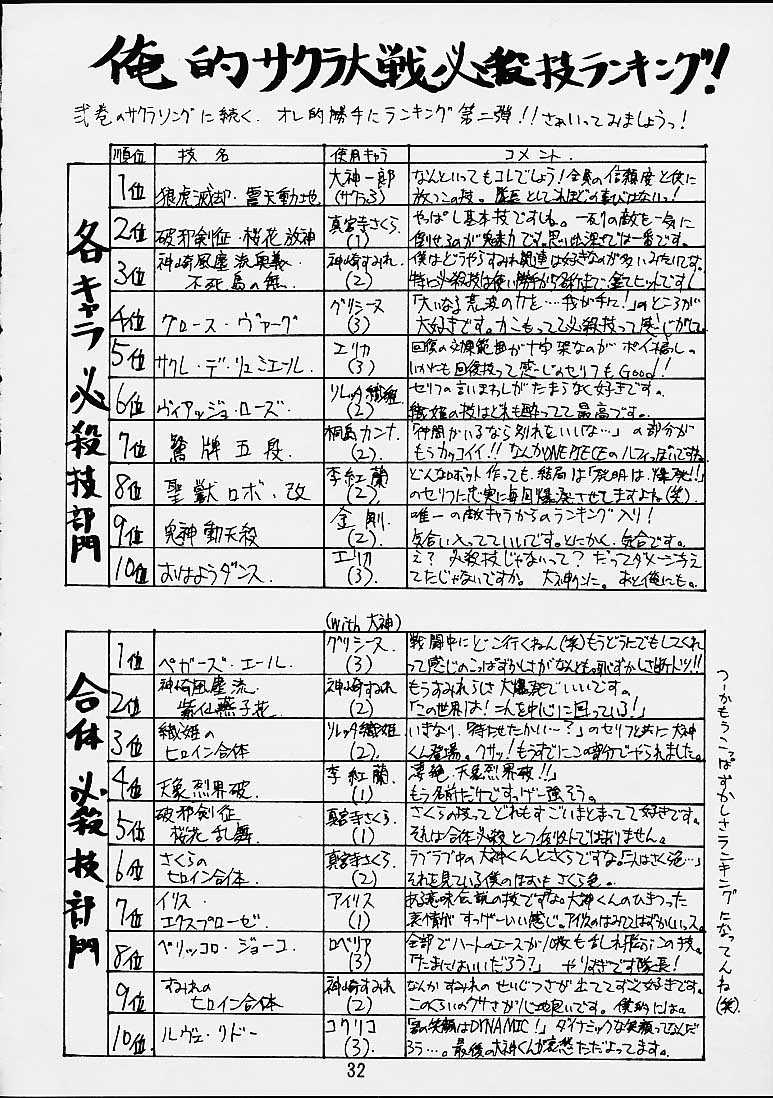 俺的サクラ大戦必殺技ランキング!
弐巻のサクラソングに続く、オレ的勝手にランキング第二弾!!さぁいってみましょうっ!
各キャラ必殺技部門
順位 技名 使用キャラ コメント
1位 狼虎滅却・震天動地 大神一郎 (サクラ3) なんといってもコレでしょう!全員の信頼度と供に
放つこの技。隊長としてこれほどの喜びはないっ!
2位 破邪剣征・桜花放神 真宮寺さくら (1) やっぱし基本技ですしね。一列の敵も一気に
倒せるのが魅力です。思い出深さでは一番です。
3位 神崎風塵流奥義・
不死鳥の舞 神崎すみれ (2) 僕はどうやらすみれ関連は好きなのが多いみたいです。
特に必殺技は使い勝手から名前まで全てヒットです!
4位 グロース・ヴァーグ グリシーヌ (3) 「大いなる荒波の力を…我が手に!」のところが
大好きです。力こもってて必殺技って感じがして。
5位 サクレ・デ・リュミエール エリカ (3) 回復の効果範囲が十字架なのがポイント高しの
いかにも回復技って感じのセリフもGood!
6位 ヴィアッジョ・ローズ ソレッタ織姫 (2) セリフの言いまわしがたまらなく好きです。
織姫の技はどれも酔ってて最高です。
7位 鷲牌五段 桐島カンナ (2) 「仲間がいるなら別れをいいな…」の部分が
もうカッコイイ!!なんかONE PIECEのルフィっぽいですね
8位 聖獣ロボ・改 李紅蘭 (2) どんなロボット作っても、結局は「発明は、爆発!!」
のセリフに忠実に毎回爆発させてますよね(笑)
9位 鬼神動天殺 金剛 (2) 唯一の敵キャラからのランキング入り!
気合い入ってていいです。とにかく、気合です。
10位 おはようダンス エリカ (3) え?必殺技じゃないって?だってダメージ与え
てたじゃないですか。大神クンに。あと俺にも。
合体必殺技部門
(with 大神)
1位 ペガーズ・エール グリシーヌ (3) 戦闘中にどこ行くねん(笑)もうどうにでもしてくれ
って感じのこっぱずかしさがなんとも。恥ずかしさ断トツ!!
2位 神崎風塵流
紫仙燕子花 神崎すみれ (2) もうすみれらしさ大爆発でいいです。
「この世界は!二人を中心に回っている!」
3位 織姫の
ヒロイン合体 ソレッタ織姫 (2) いきなり「待たせたかい…?」のセリフと共に大神
くん登場。クサッ!もうすでにこの部分でやられました。
4位 天象烈界破 李紅蘭 (1) 「凄絶、天象烈界破!!」
もう名前だけですっげー強そう。
5位 破邪剣征
桜花乱舞 真宮寺さくら (1) さくらの技ってどれもすごいまとまってて好きです。
それは合体必殺とて例外ではありません。
6位 さくらの
ヒロイン合体 真宮寺さくら (2) ラブラブ中の大神くんとさくらですな。「人はさくら色…」
それを見ている僕のほほもさくら色。
7位 イリス・
エクスプローゼ アイリス (1) ある意味伝説の技ですな。大神くんのひきつった
表情がすっげーいい感じ。アイリスのはみててはずかしいっス。
8位 ベリッコロ・ジョーコ ロベリア (3) 全部でハートのエースが10枚もまじれ飛ぶこの技。
「たまにはいいだろう?」 やりすぎです隊長!
9位 すみれの
ヒロイン合体 神崎すみれ (2) なんかすみれのせいじつさが出ててすごく好きです。
このくらいのクサさが心地良いです。僕的には。
10位 ルヴェ・リドー コクリコ (3) 「君の笑顔はDYNAMIC!」ダイナミックな笑顔ってなんだ
ろう…。最後の大神くんが哀愁ただよってます。
つーかもうこっぱずかしさランキングになってんね(笑)
32